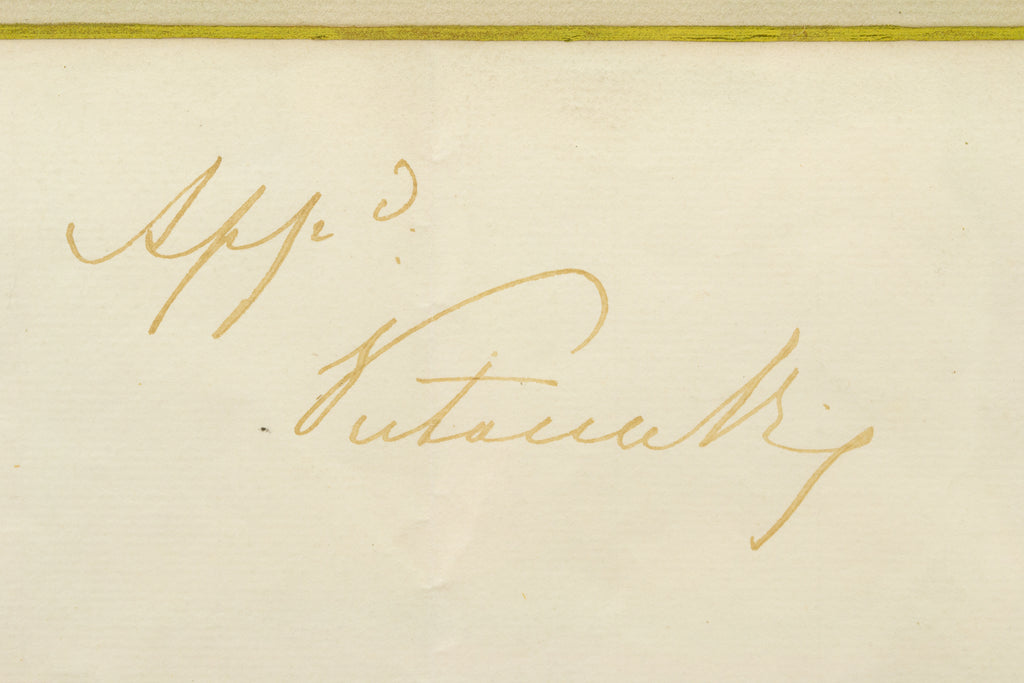 Appd
Victoria Rg